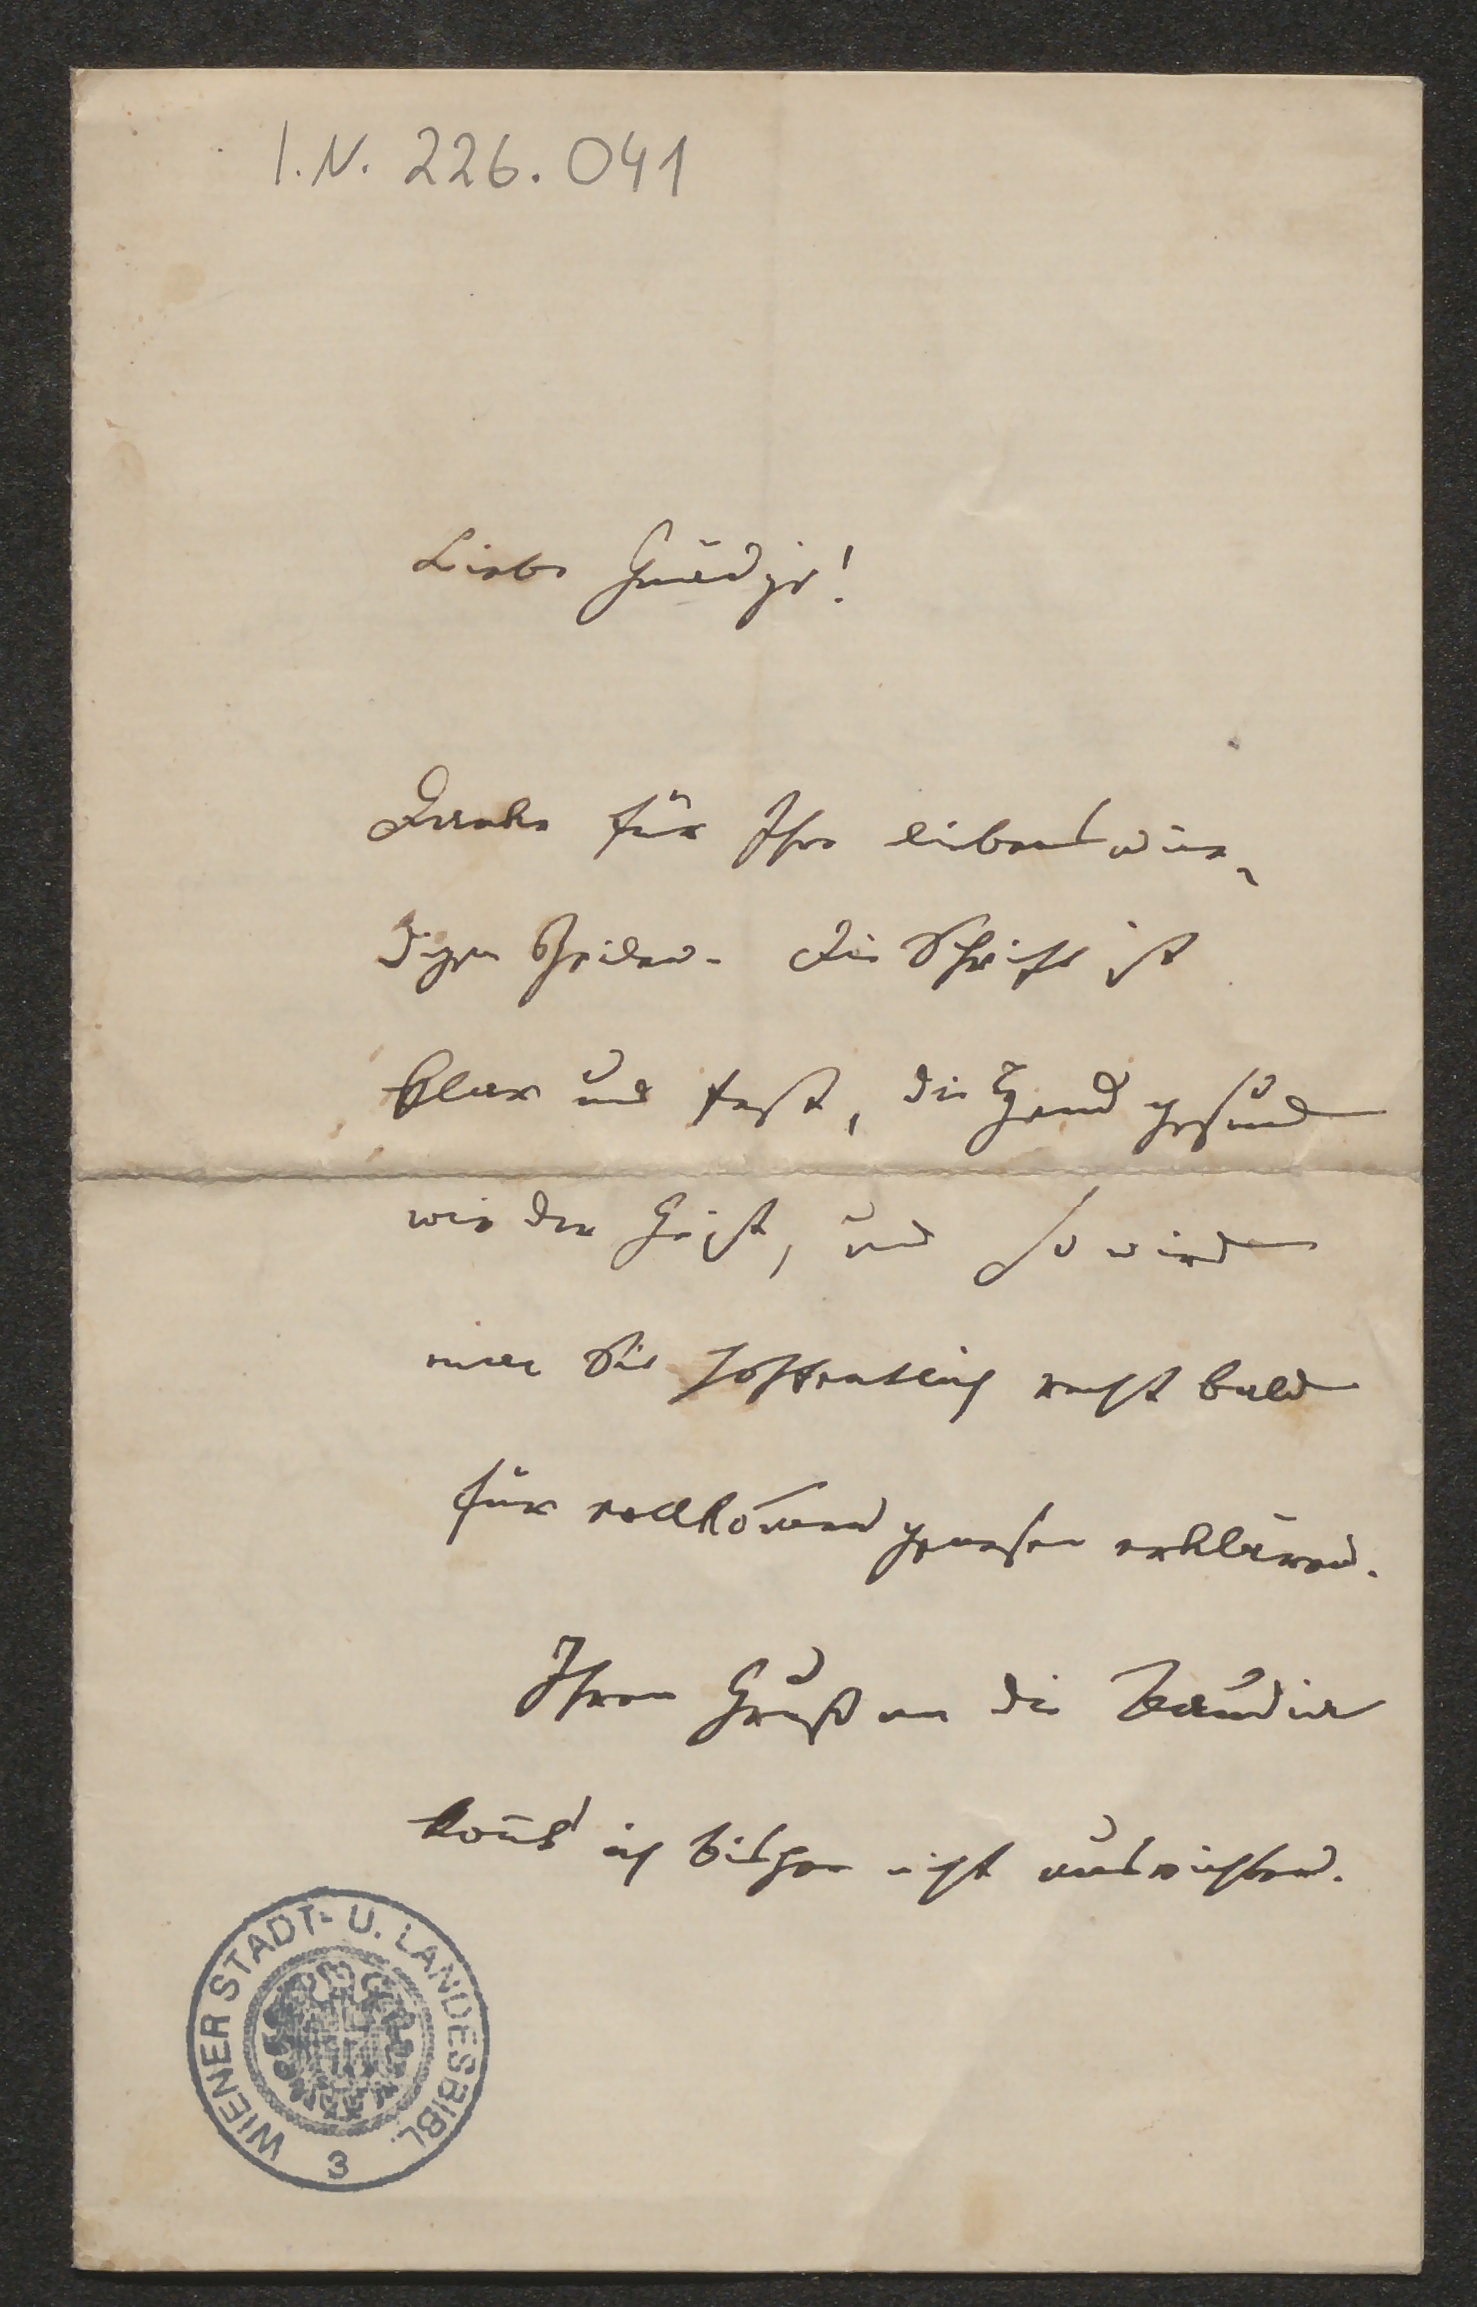 I.N. 226.041
Liebe Gnädige!
Danke für Ihre liebenswür-
digen Zeilen. Die Schrift ist
klar und fest, die Hand gesund
wie der Geist, und so wird
man Sie hoffentlich recht bald
für vollkom̄en genesen erklären.
Ihren Gruß an die
kon̄t' ich bisher nicht ausrichten.
WIENER STADT- U. LANDESBIBL.
3